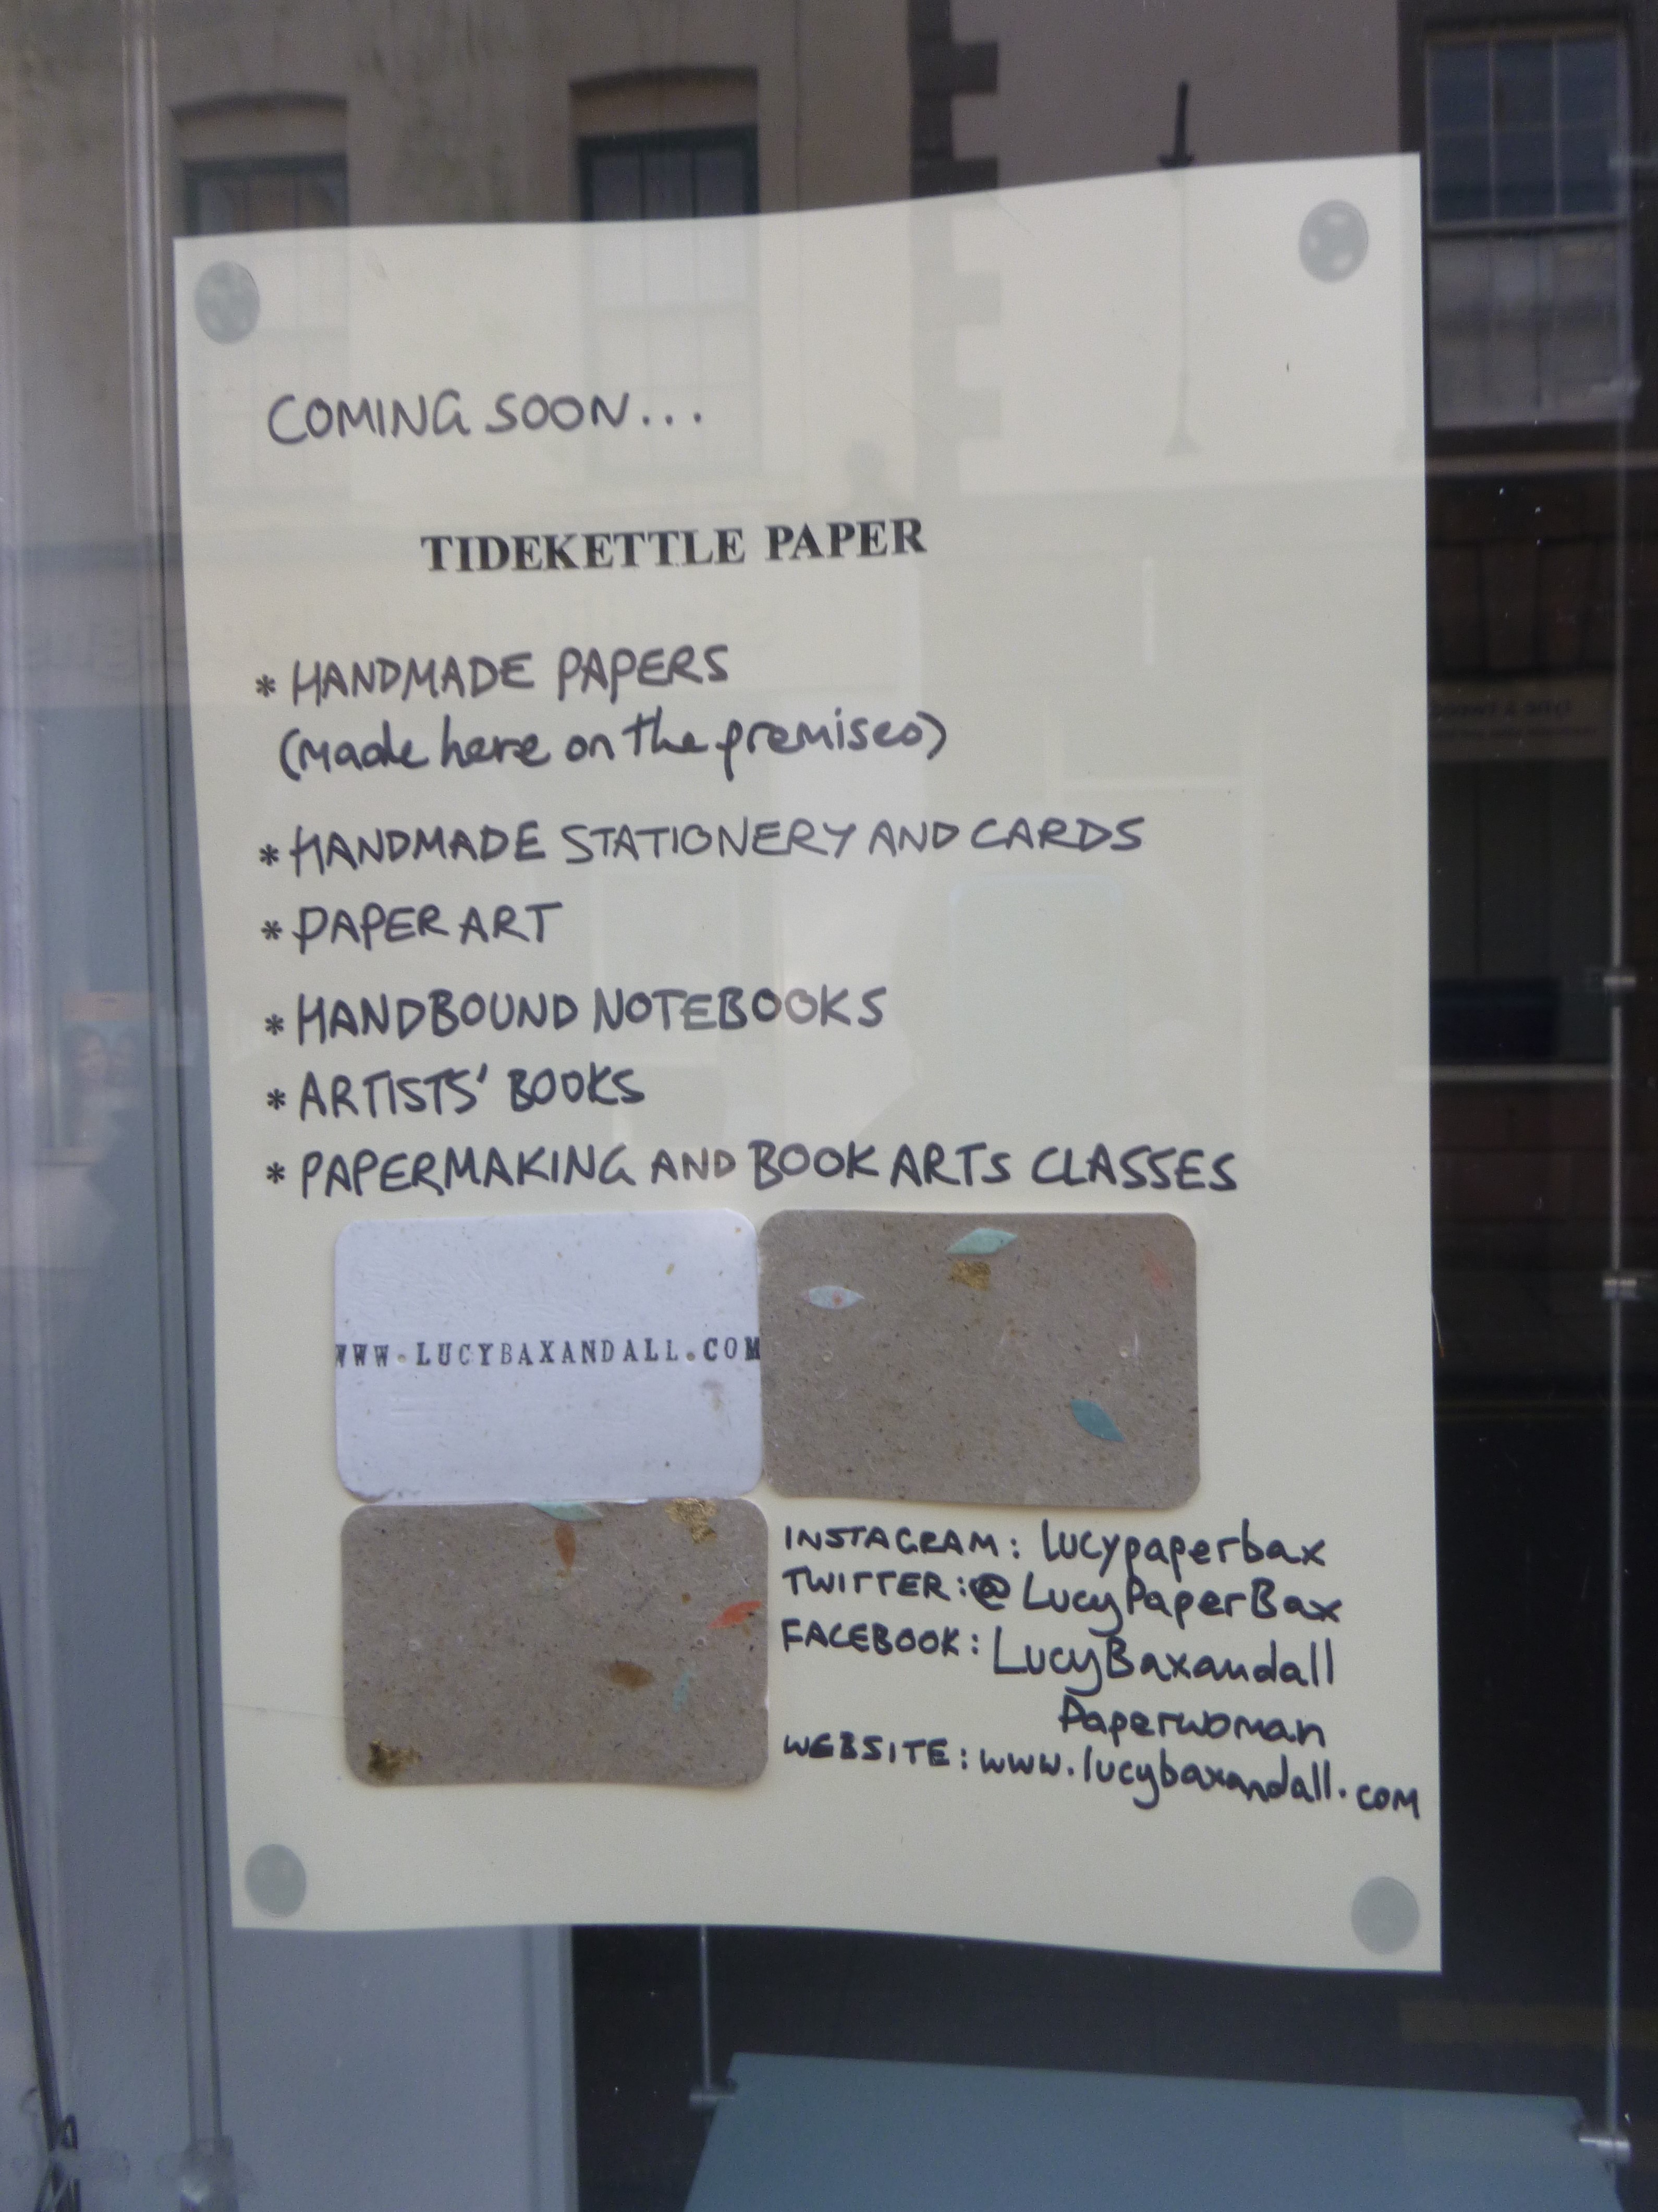 COMING SOON...
TIDEKETTLE PAPER
* HANDMADE PAPERS
(made here on the premises)
* HANDMADE STATIONERY AND CARDS
* PAPER ART
* HANDBOUND NOTEBOOKS
* ARTISTS' BOOKS
* PAPERMAKING AND BOOK ARTS CLASSES
WWW.LUCYBAXANDALL.COM
INSTAGRAM: lucypaperbax
TWITTER: @LucyPaperBax
FACEBOOK: LucyBaxandall
Paperwoman
WEBSITE: www.lucybaxandall.com